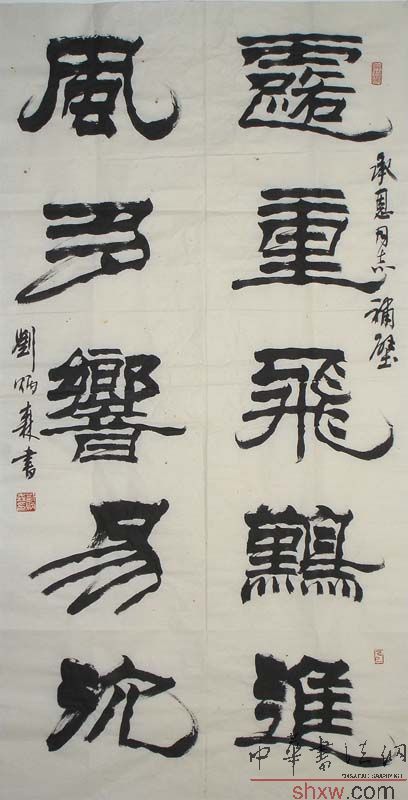 露重飛難進
承恩同志補壁
風多響易沈
劉炳森書
中華書法網
shxw.com